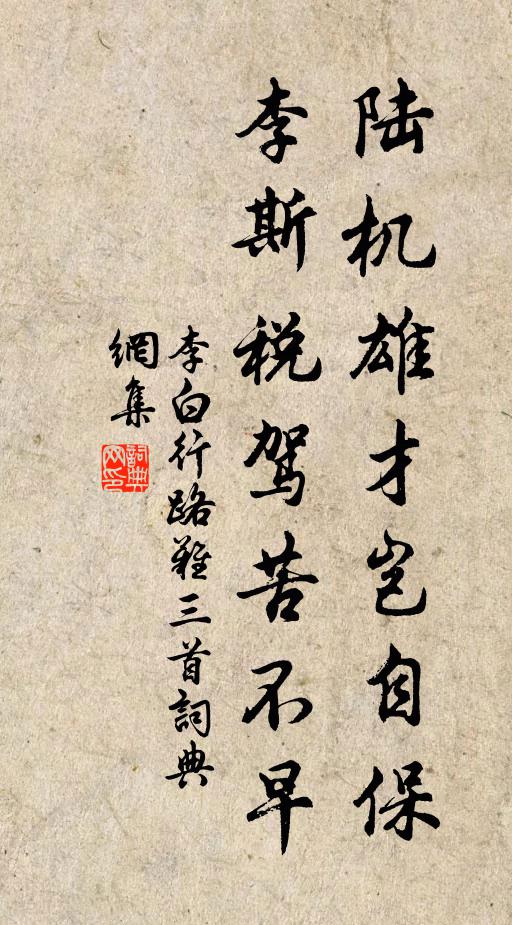 陆机雄才岂自保
李斯税驾苦不早
李白行路難三首詞典
網集
詞典
网印